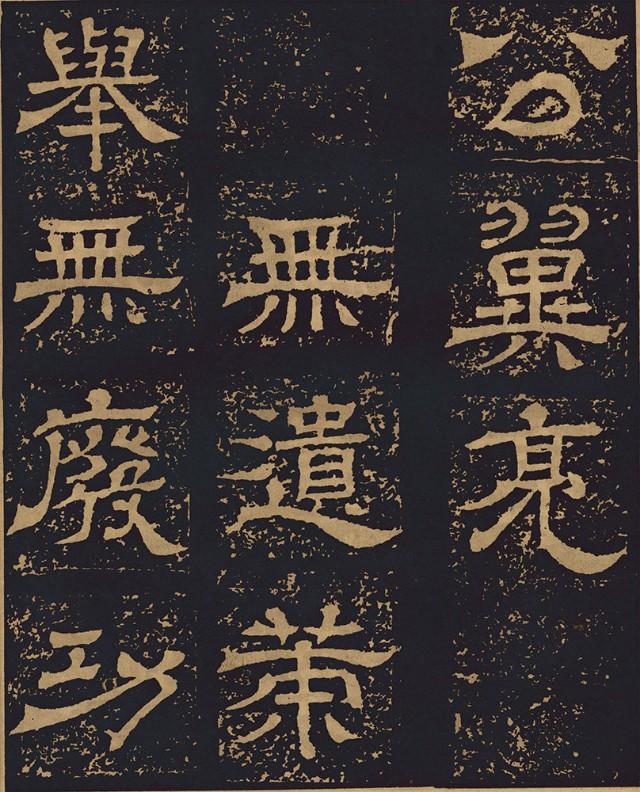 公翼亮
無遺荣
舉無廢功